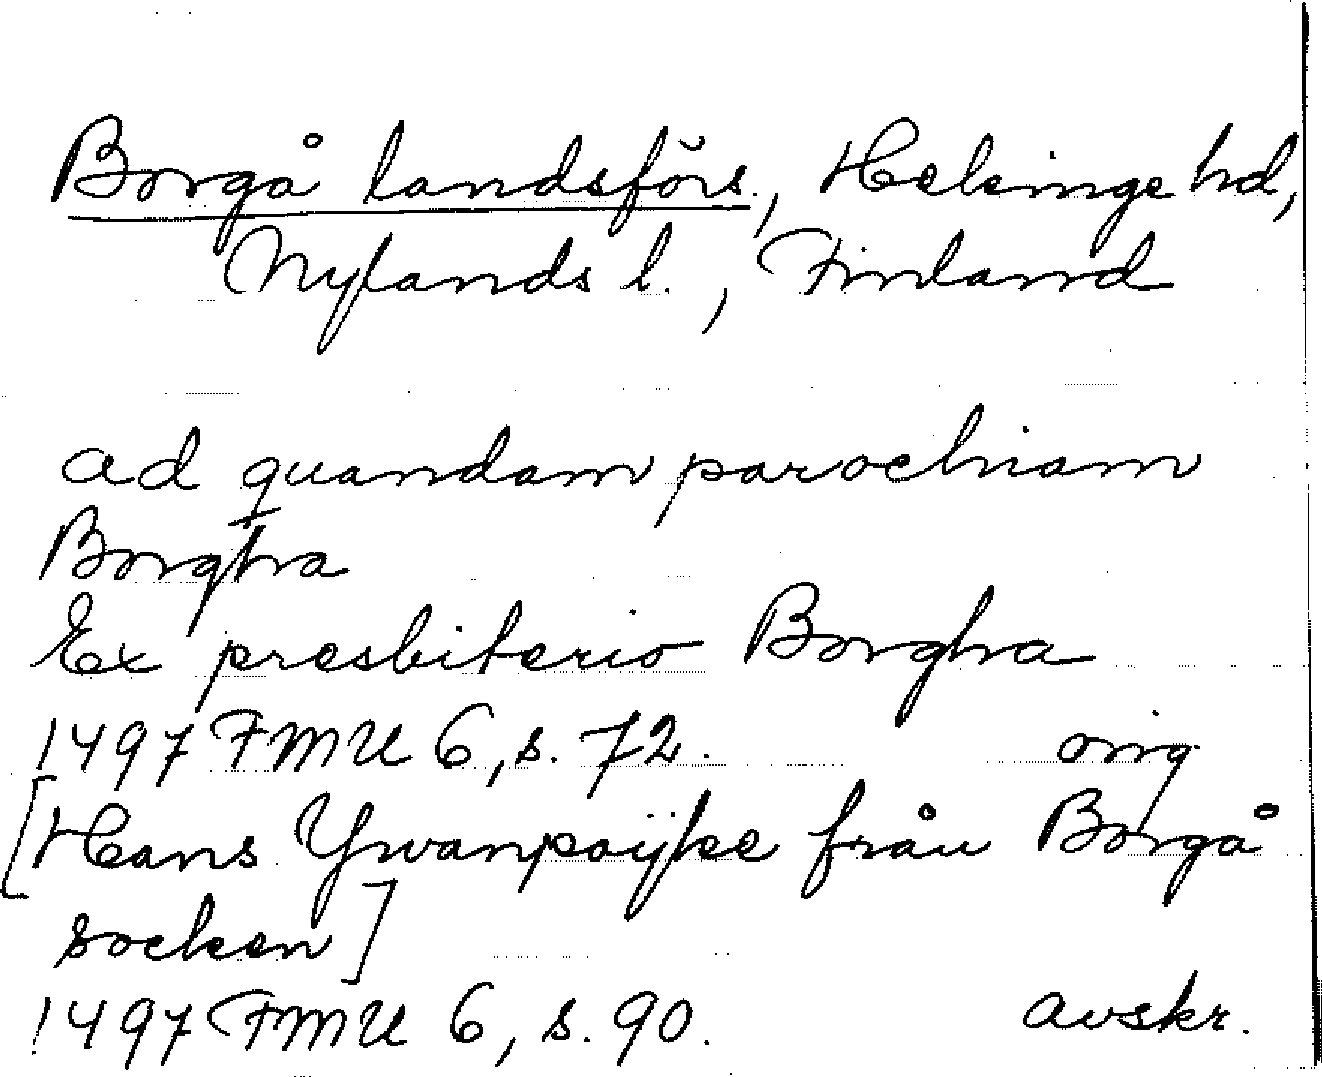 Borgå landsförs., Helsinge hd,
Nylands l., Finland
ad quandam parochiam
Borgha
Ex presbiterio Borgha
1497 FMU 6, s. 72. orig
[Hans Ywanpoÿke från Borgå
socken]
1497 FMU 6, s. 90. avskr.